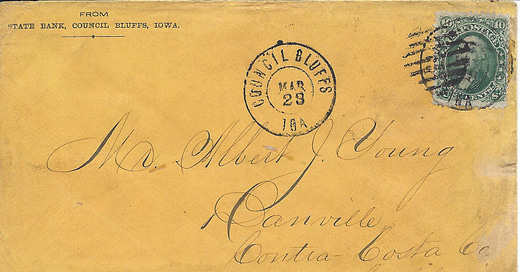 FROM
STATE BANK, COUNCIL BLUFFS, IOWA.
COUNCIL BLUFFS
MAR
23
IOA
10 10
U.S. POSTAGE
Mr. Albert J. Young
Danville
Contra-Costa Co